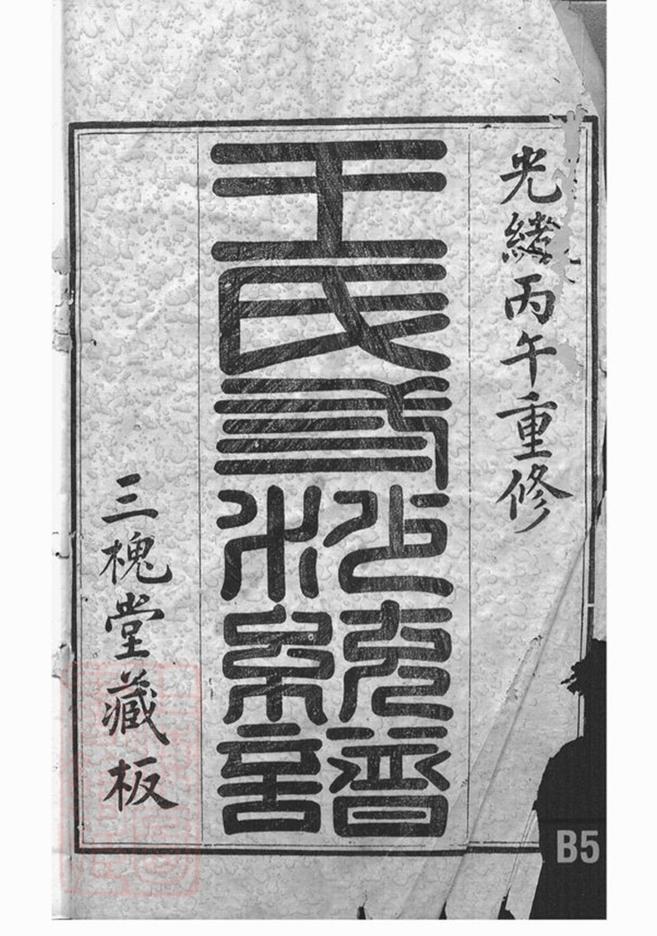 光緒丙午重修
王氏弎沙統譜
三槐堂藏板
B5